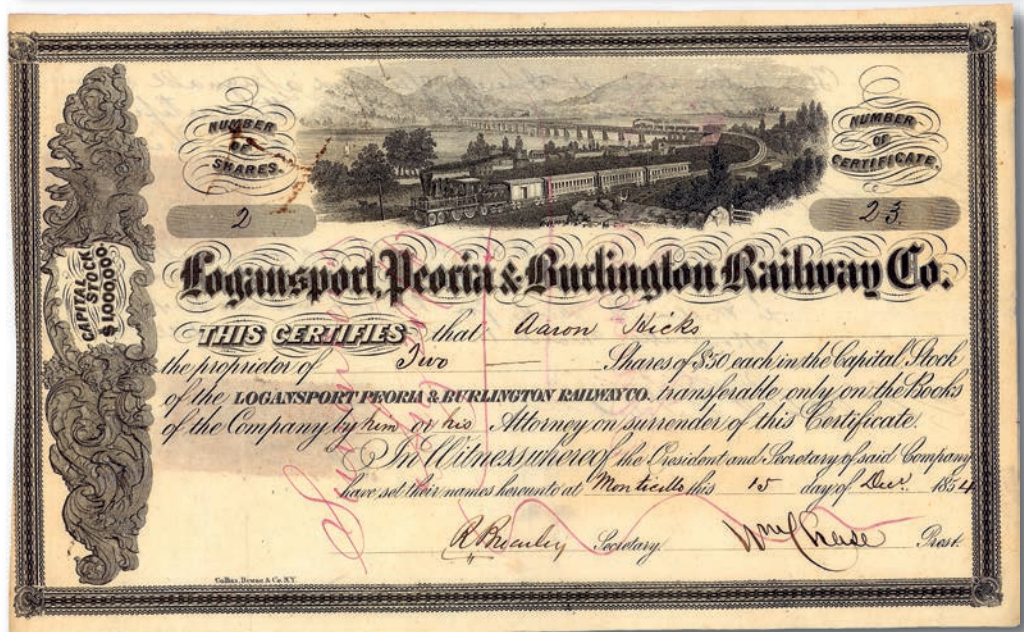 NUMBER
OF
SHARES.
2
NUMBER
OF
CERTIFICATE.
23.
CAPITAL
STOCK
$1,000,000.
Logansport, Peoria & Burlington Railway Co.
THIS CERTIFIES that Aaron Hicks
the proprietor of Two Shares of $50 each in the Capital Stock
of the LOGANSPORT PEORIA & BURLINGTON RAILWAY CO. transferable only on the Books
of the Company by him or his Attorney on surrender of this Certificate.
In Witness whereof the President and Secretary of said Company
have set their names hereunto at Monticello this 15 day of Decr. 1854
Secretary.
Wm Chase Prest.
& Co. N.Y.